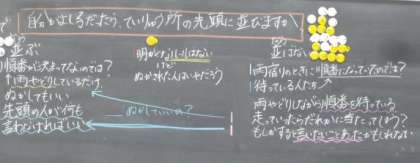 自分とよしろうだったら、ていりゅう所の先頭に並びますか
並ぶ
順番が決まってないのでは？
雨やどりしているだけ
ぬかしてもいい
先頭の人が何も
言わなければいい
明かなうしろはない
けど
ぬかされた人はいやだろう
ぬかしていい？
並ばない
雨宿りのときに順番になっていたのでは？
待っている人たち
雨やどりしながら順番を待っている
走っていったらだれかに当たってしまう？
もしかすると言いたいことあったかもしれない